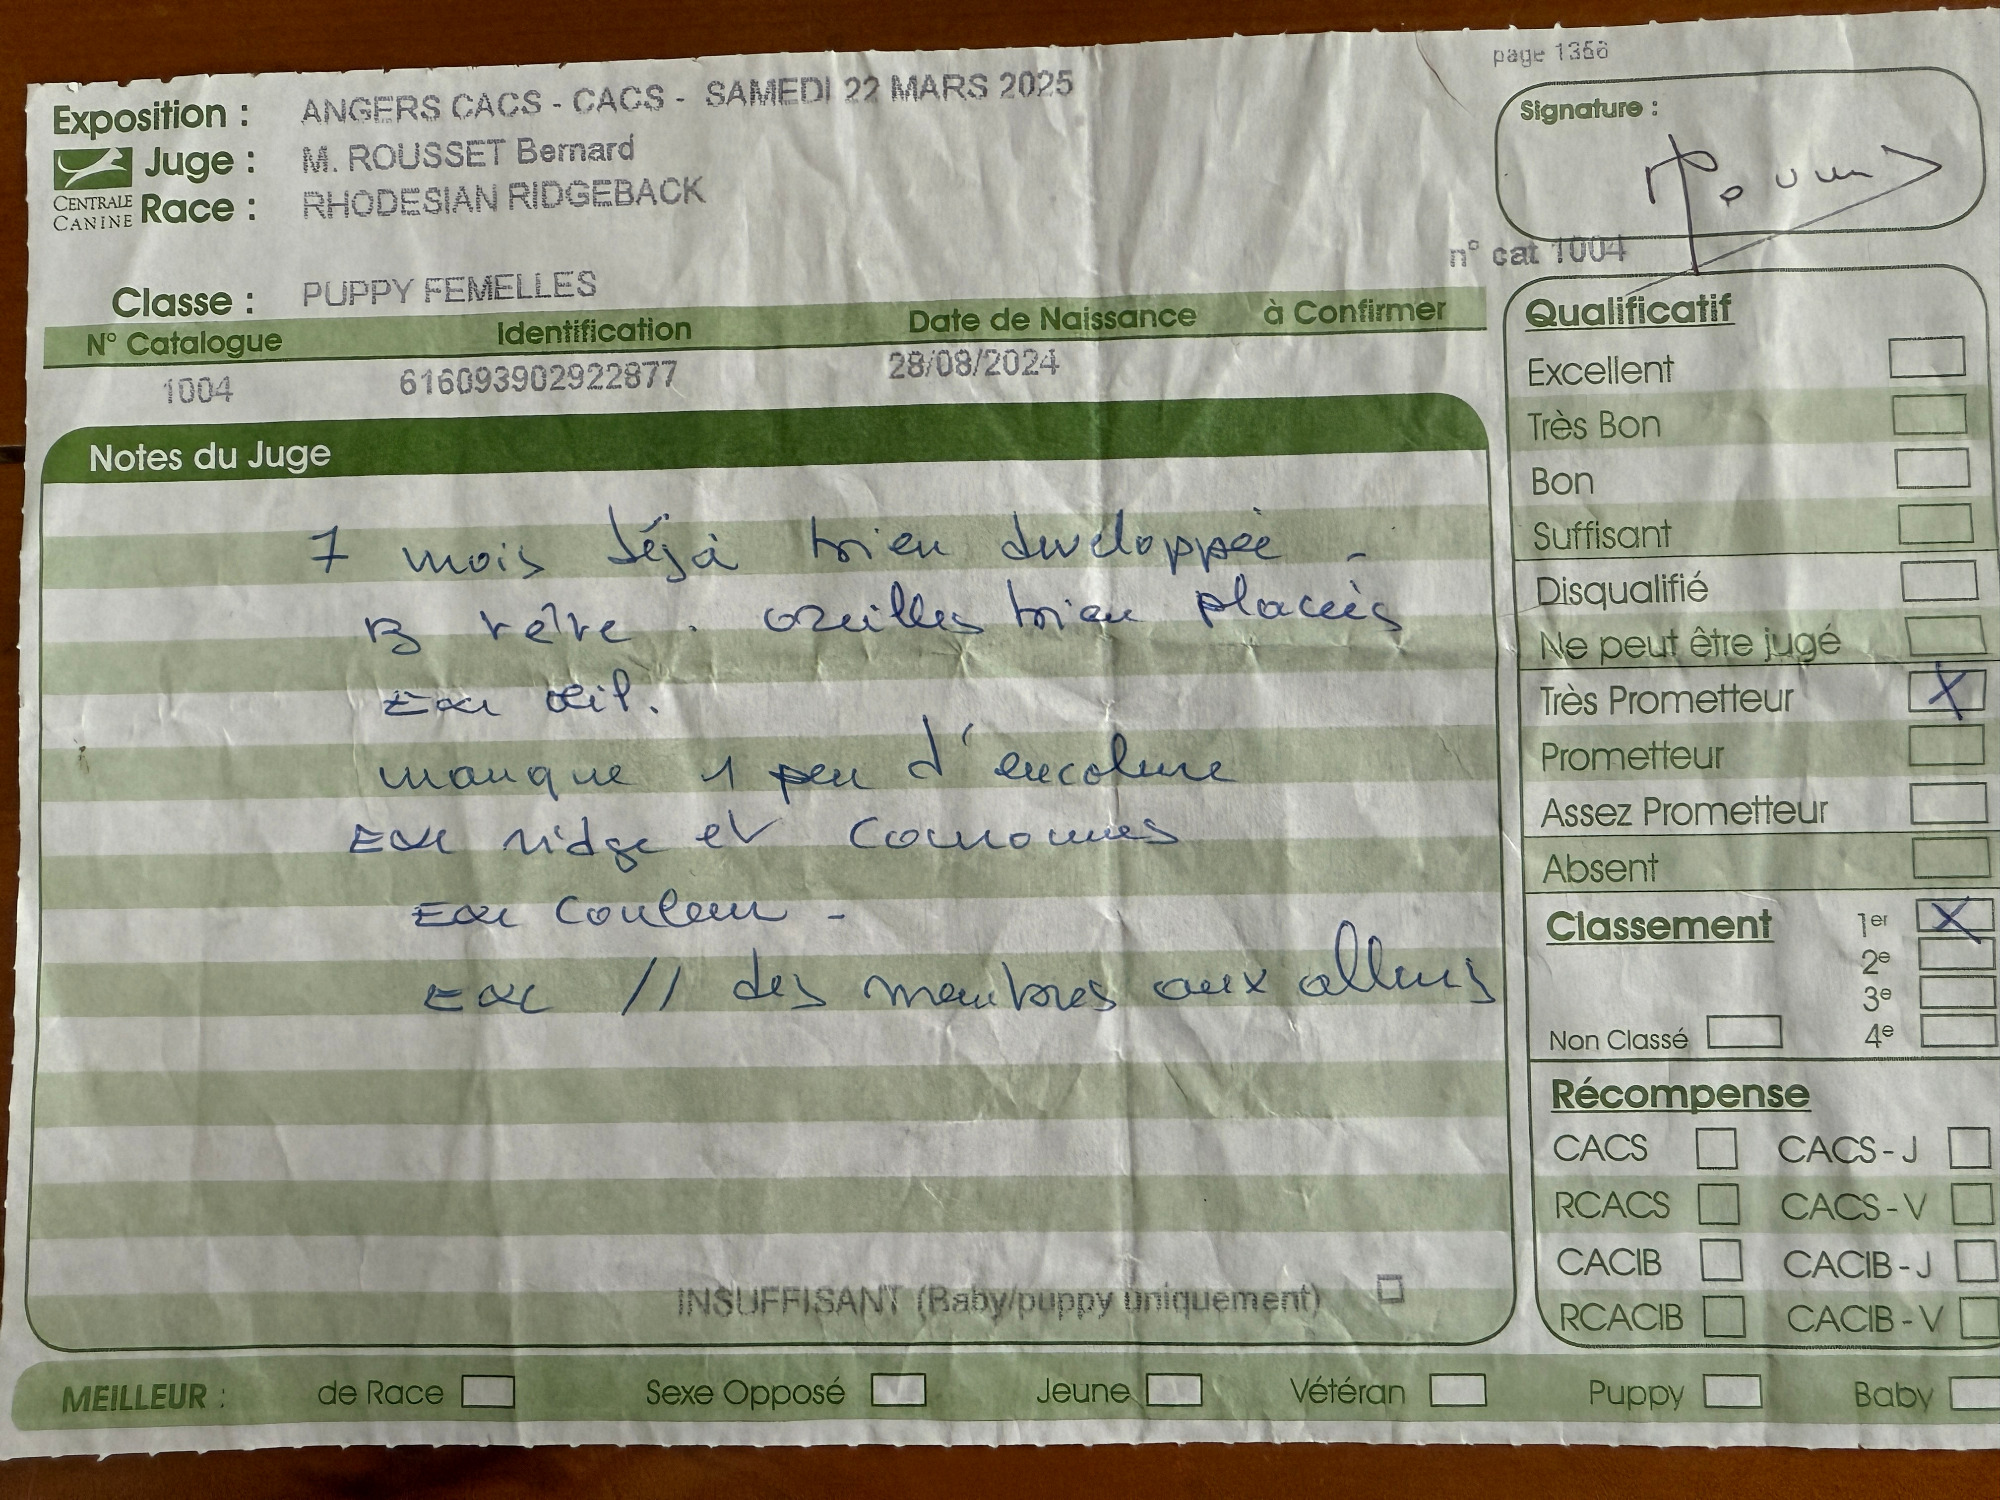 page 1356
Exposition : ANGERS CACS - CACS - SAMEDI 22 MARS 2025
Juge : M. ROUSSET Bernard
CENTRALE CANINE
Race : RHODESIAN RIDGEBACK
Signature :
n° cat 1004
Classe : PUPPY FEMELLES
N° Catalogue Identification Date de Naissance à Confirmer
1004 616093902922877 28/08/2024
Notes du Juge
7 mois déjà bien developpée -
B tête . oreilles bien placées
Exc œil.
manque 1 peu d'encolure
Exc ridge et couronnes
Exc couleur -
Exc // des membres aux allures
INSUFFISANT (Baby/puppy uniquement)
Qualificatif
Excellent
Très Bon
Bon
Suffisant
Disqualifié
Ne peut être jugé
Très Prometteur X
Prometteur
Assez Prometteur
Absent
Classement 1er X
2e
3e
Non Classé 4e
Récompense
CACS CACS - J
RCACS CACS - V
CACIB CACIB - J
RCACIB CACIB - V
MEILLEUR : de Race Sexe Opposé Jeune Vétéran Puppy Baby